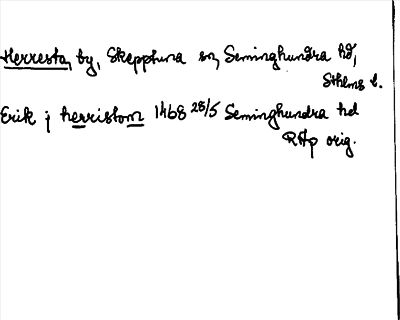 Herresta, by, Skepptuna sn, Seminghundra hd,
Sthlms l.
Erik j herristom 1468 28/5 Seminghundra hd
RAp orig.